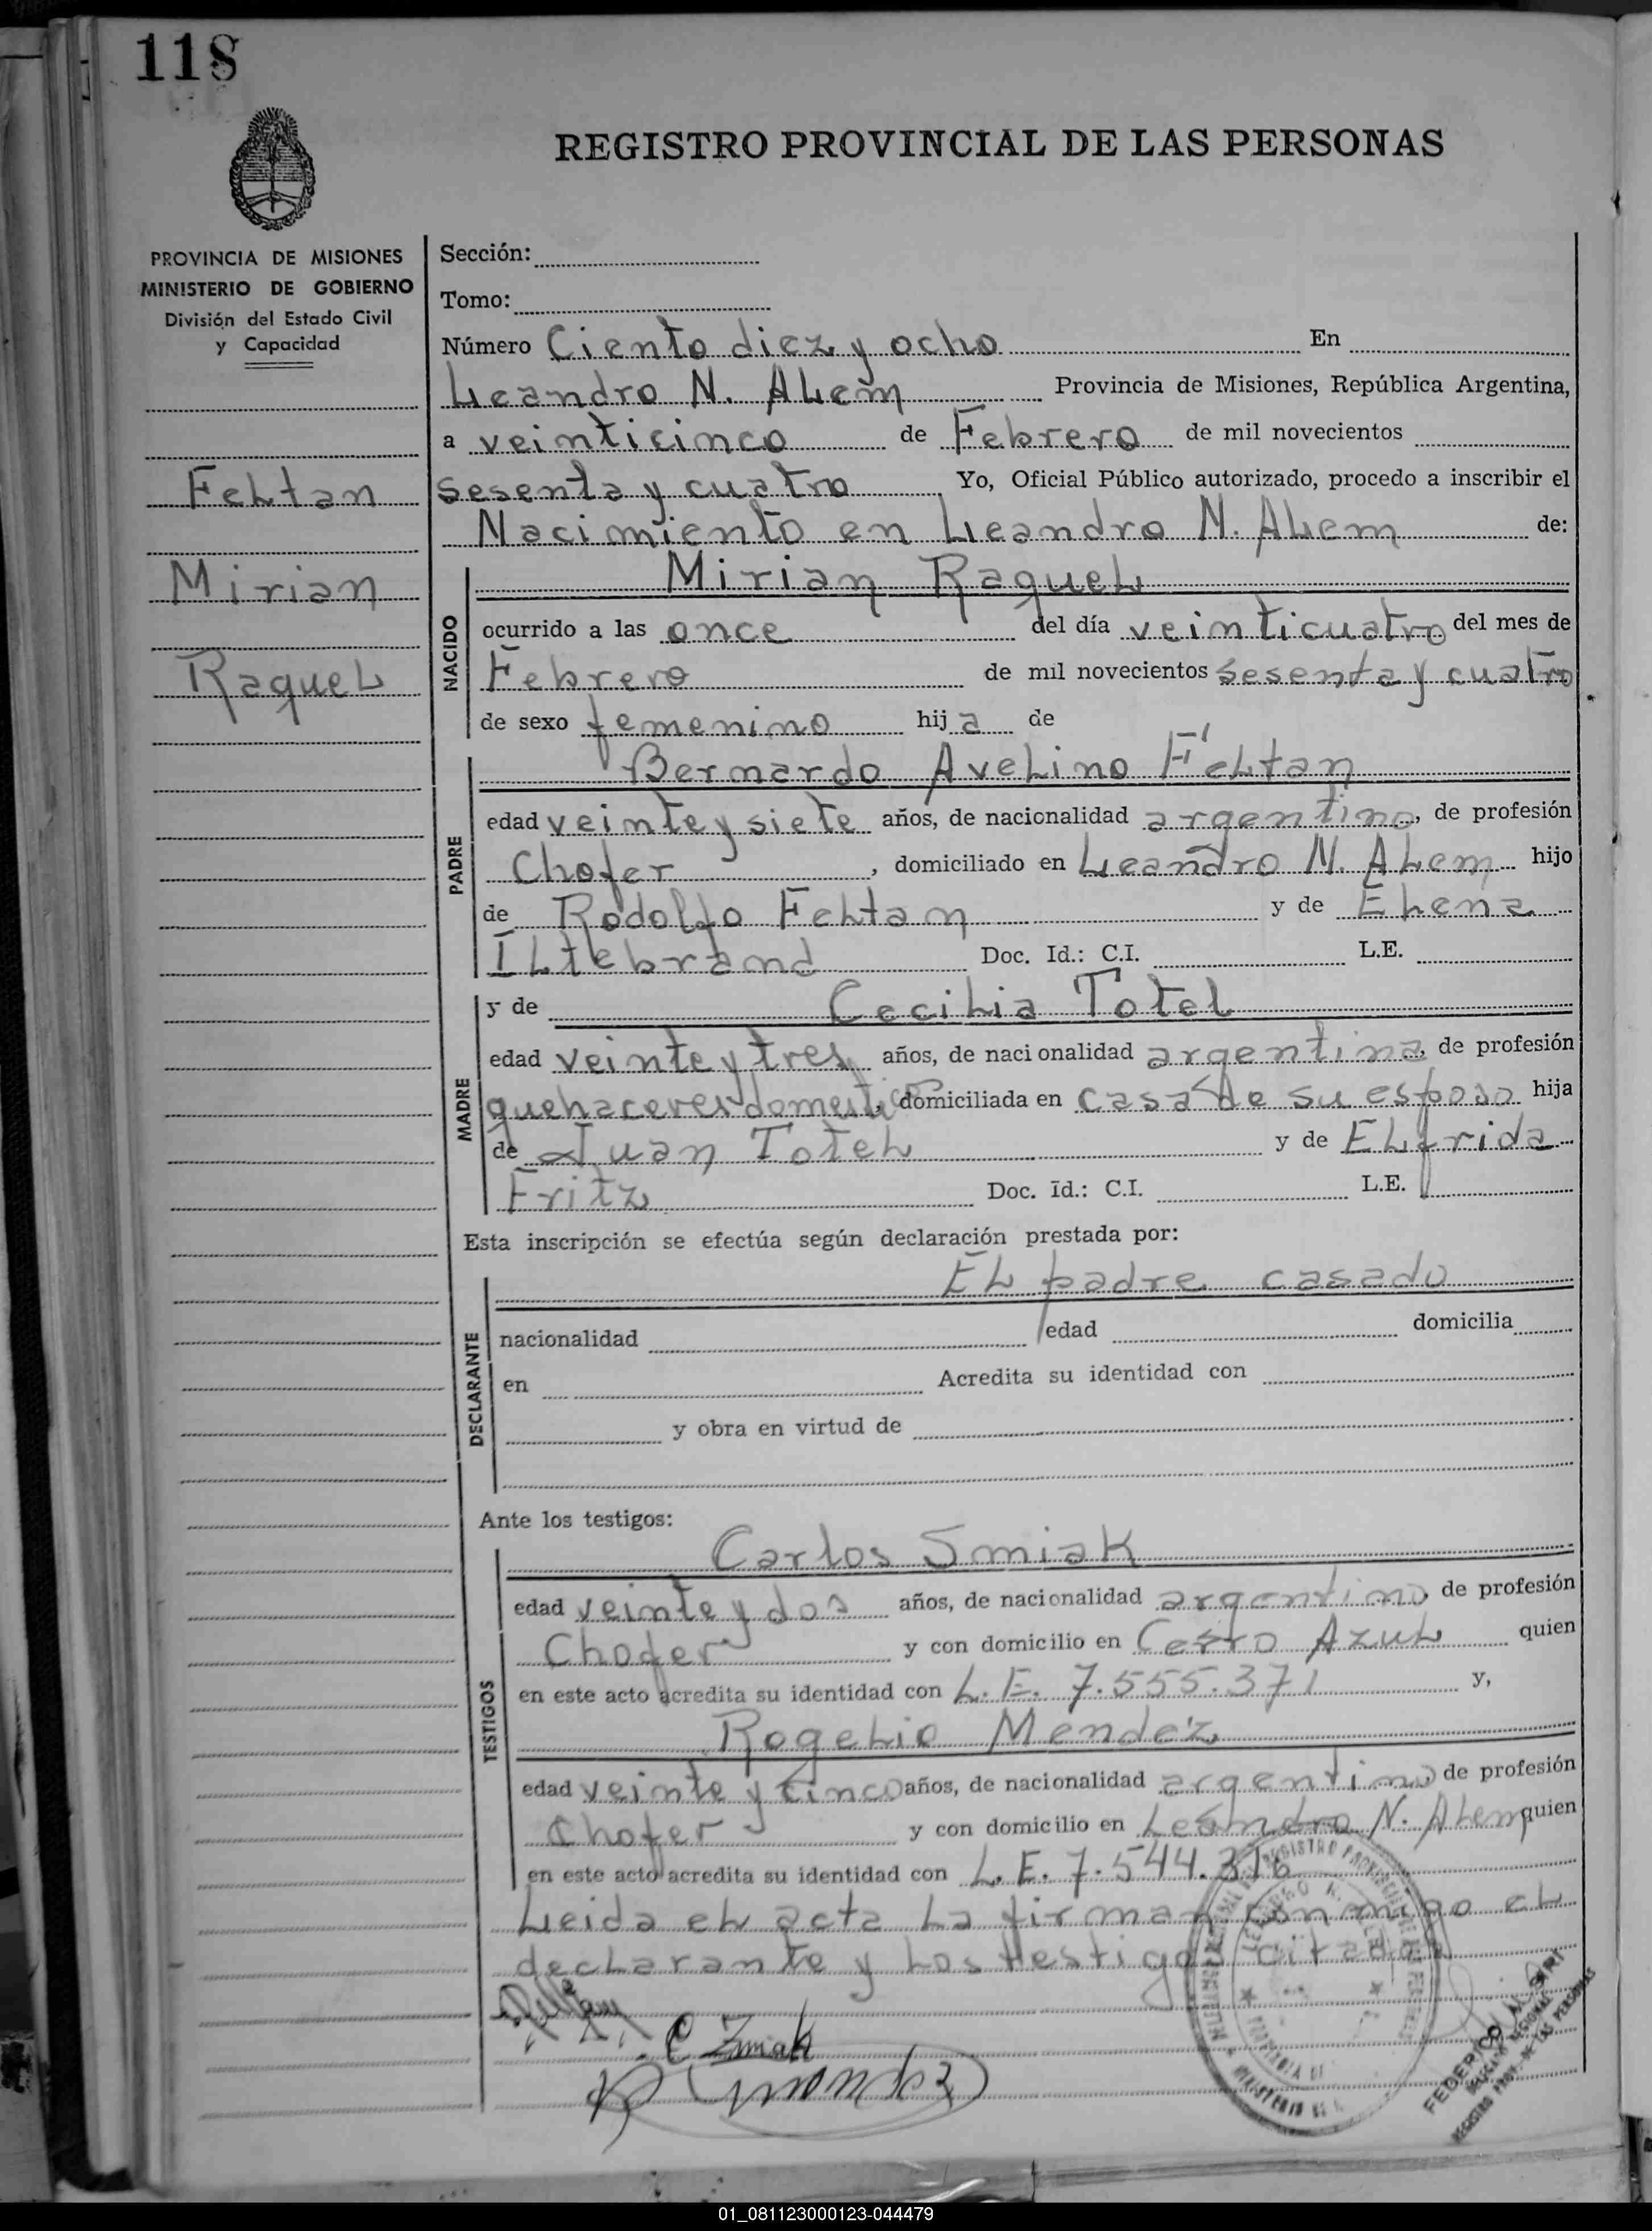 118
REGISTRO PROVINCIAL DE LAS PERSONAS
PROVINCIA DE MISIONES
MINISTERIO DE GOBIERNO
División del Estado Civil
y Capacidad
Feltan
Mirian
Raquel
Sección:
Tomo:
Número Ciento diez y ocho En
Leandro N. Alem Provincia de Misiones, República Argentina,
a veinticinco de Febrero de mil novecientos
sesenta y cuatro Yo, Oficial Público autorizado, procedo a inscribir el
Nacimiento en Leandro N. Alem de:
NACIDO
Mirian Raquel
ocurrido a las once del día veinticuatro del mes de
Febrero de mil novecientos sesenta y cuatro
de sexo femenino hija de
PADRE
Bernardo Avelino Feltan
edad veinte y siete años, de nacionalidad argentino, de profesión
Chofer, domiciliado en Leandro N. Alem hijo
de Rodolfo Feltan y de Elena
Iltebrand Doc. Id.: C.I. L.E.
MADRE
y de Cecilia Totel
edad veinte y tres años, de nacionalidad argentina, de profesión
quehaceres domestico, domiciliada en casa de su esposo hija
de Juan Totel y de Elfrida
Fritz Doc. Id.: C.I. L.E.
Esta inscripción se efectúa según declaración prestada por:
DECLARANTE
El padre casado
nacionalidad edad domicilia
en Acredita su identidad con
y obra en virtud de
Ante los testigos:
TESTIGOS
Carlos Smiak
edad veinte y dos años, de nacionalidad argentino, de profesión
Chofer y con domicilio en Cerro Azul quien
en este acto acredita su identidad con L.E. 7.555.371 y,
Rogelio Mendez
edad veinte y cinco años, de nacionalidad argentino de profesión
Chofer y con domicilio en Leandro N. Alem quien
en este acto acredita su identidad con L.E. 7.544.316
Leida el acta la firman conmigo el
declarante y los testigos citados
C Zmiak
FEDERICO
DELEGADO REGIONAL
REGISTRO PROV. DE LAS PERSONAS
01_081123000123-044479